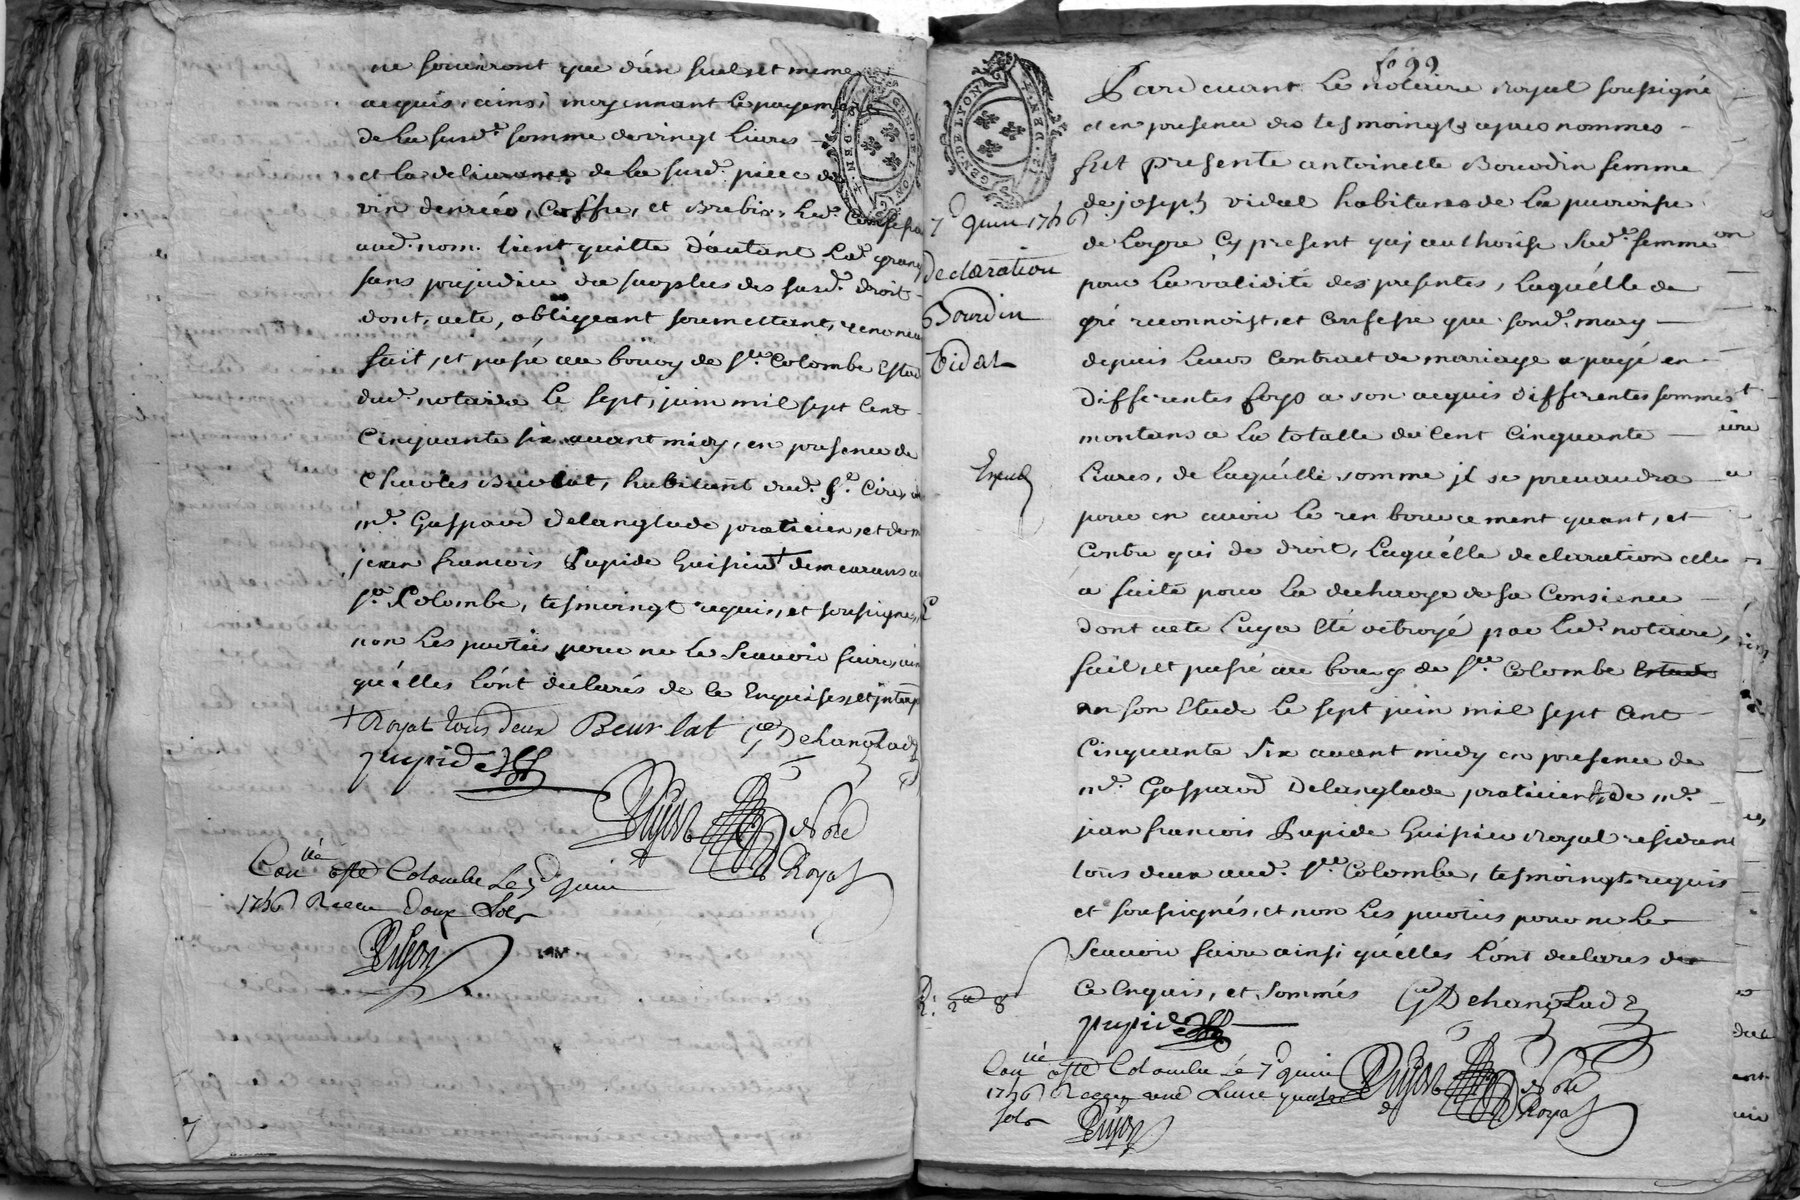 ne serviront que d'un seul et meme
acquis, ainsi moyennant le payement
de la susd.e somme de vingt livres
et la delivrance de la susd.e piece de
vin denrées, coffre, et Brebis, led.
aud. nom. tient quitte d'autant lad. grang
sans prejudice du surplus des susd. droit
dont acte, obligeant soumettant, renoncu
fait, et passé au bourg de S.te Colombe Estud
dud. notaire le sept, juin mil sept Cent
Cinquante six avant midy, en presence de
Charles Beurlat, habitant dud. S.t Cire,
m.e Gaspard Delanglade praticien, et de m
jean francois Pupide huissier + demeurans a
S.te Colombe, tesmoingt requis, et soussignes,
non les parties pour ne le Scavoir faire, ain
qu'elles l'ont declarés de ce Enquises, et interp
+ Royal tous deux Beurlat G Delanglade
pupide
Pujon No.re
Royal
Con.lé à S.te Colombe Le 7.e Juin
1756 Receu Doux Sols
Pujon
GEN.DE LYON
GEN.DE LYON
Pardevant le notaire royal soussigné
et en presence des tesmoingts apres nommés
fut presente antoinette Bourdin femme
de joseph vidal habitans de la parroisse
7.e Juin 1756
de Cy present qui authorise sad.e femme
Declaration
pour la validité des presentes, Laquelle de
Bourdin
gré reconnoist, et Confesse que sond. mary
Vidal
depuis leurs Contract de mariage a payé en
differentes foys a son acquis differentes sommes
montans a la totalle de Cent Cinquante
Expéd
Livres, de laquelle somme il se prevaudra
pour en avoir le renbourcement quant, et
Contre qui de droit, Laquelle declaration elle
a faite pour la decharge de sa Consience
dont acte luy a Eté octroyé par led. notaire,
fait, et passé au bourg de S.te Colombe Estude
en son Etude le sept juin mil sept Cent
Cinquante Six avant midy en presence de
m.e Gaspard Delanglade praticien, et de m.e
jean francois Pupide huissier royal residant
tous deux aud. S.te Colombe, tesmoingts requis
et soussignés, et non les parties pour ne le
Scavoir faire ainsi qu'elles l'ont declarés de
Ce Enquis, et Sommés G Delanglade
pupide
Con.lé à S.te Colombe Le 7.e Juin
1756 Receu une Livre quatre
sols
Pujon No.re
Royal
Pujon